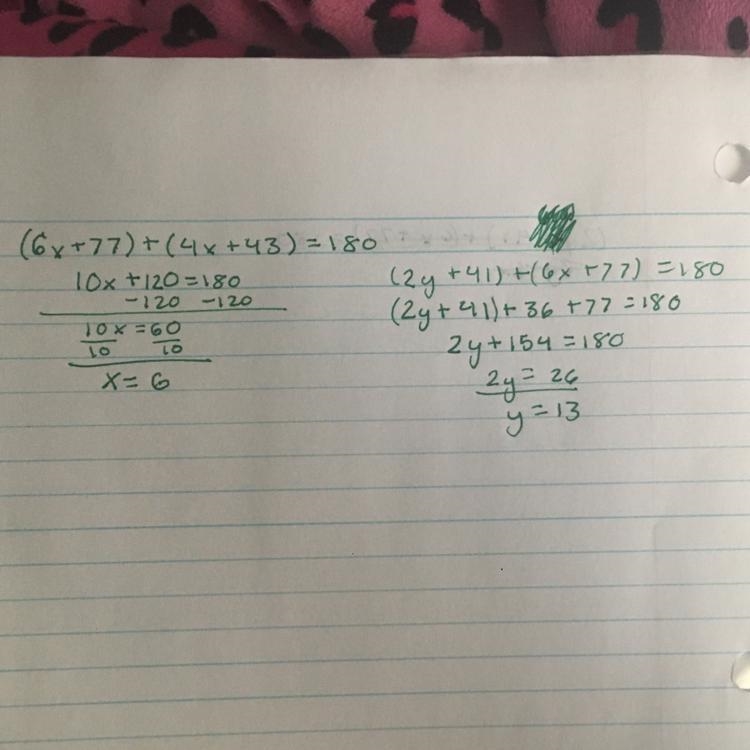 (6x+77)+(4x+43)=180
10x+120=180
-120 -120
10x=60
10 10
x=6
(2y+41)+(6x+77)=180
(2y+41)+36+77=180
2y+154=180
2y=26
y=13